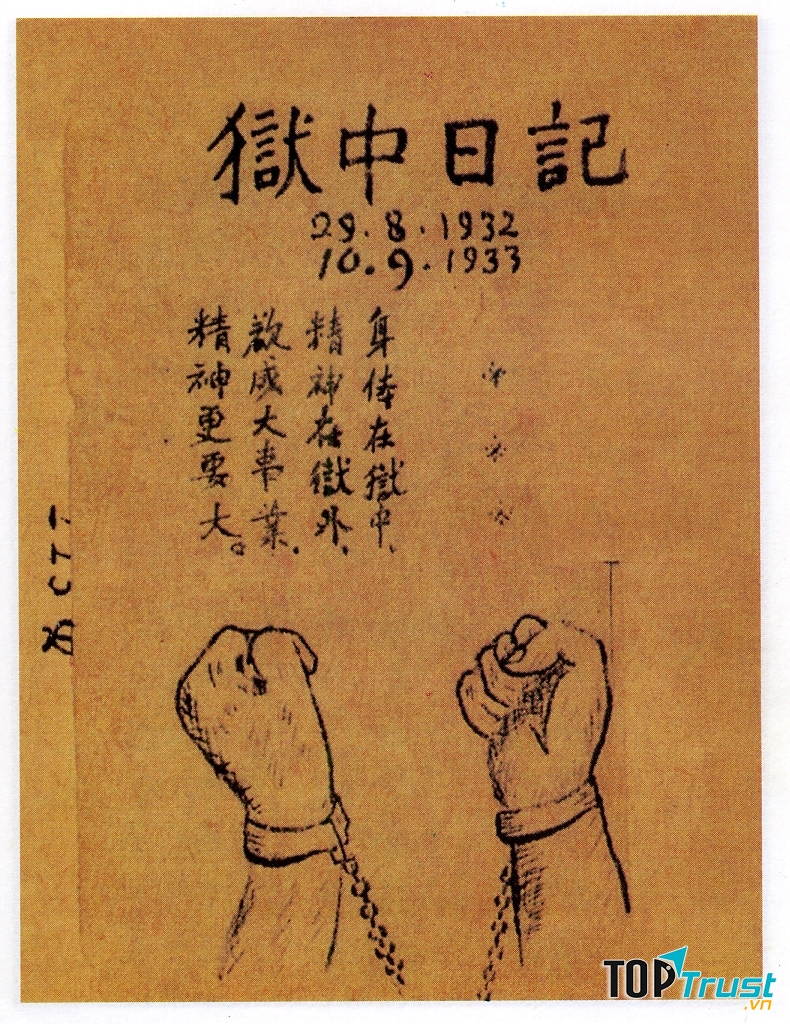 獄中日記
29.8.1932
10.9.1933
身体在獄中、
精神在獄外、
欲成大事業.
精神更要大。
TOPTrust.vn